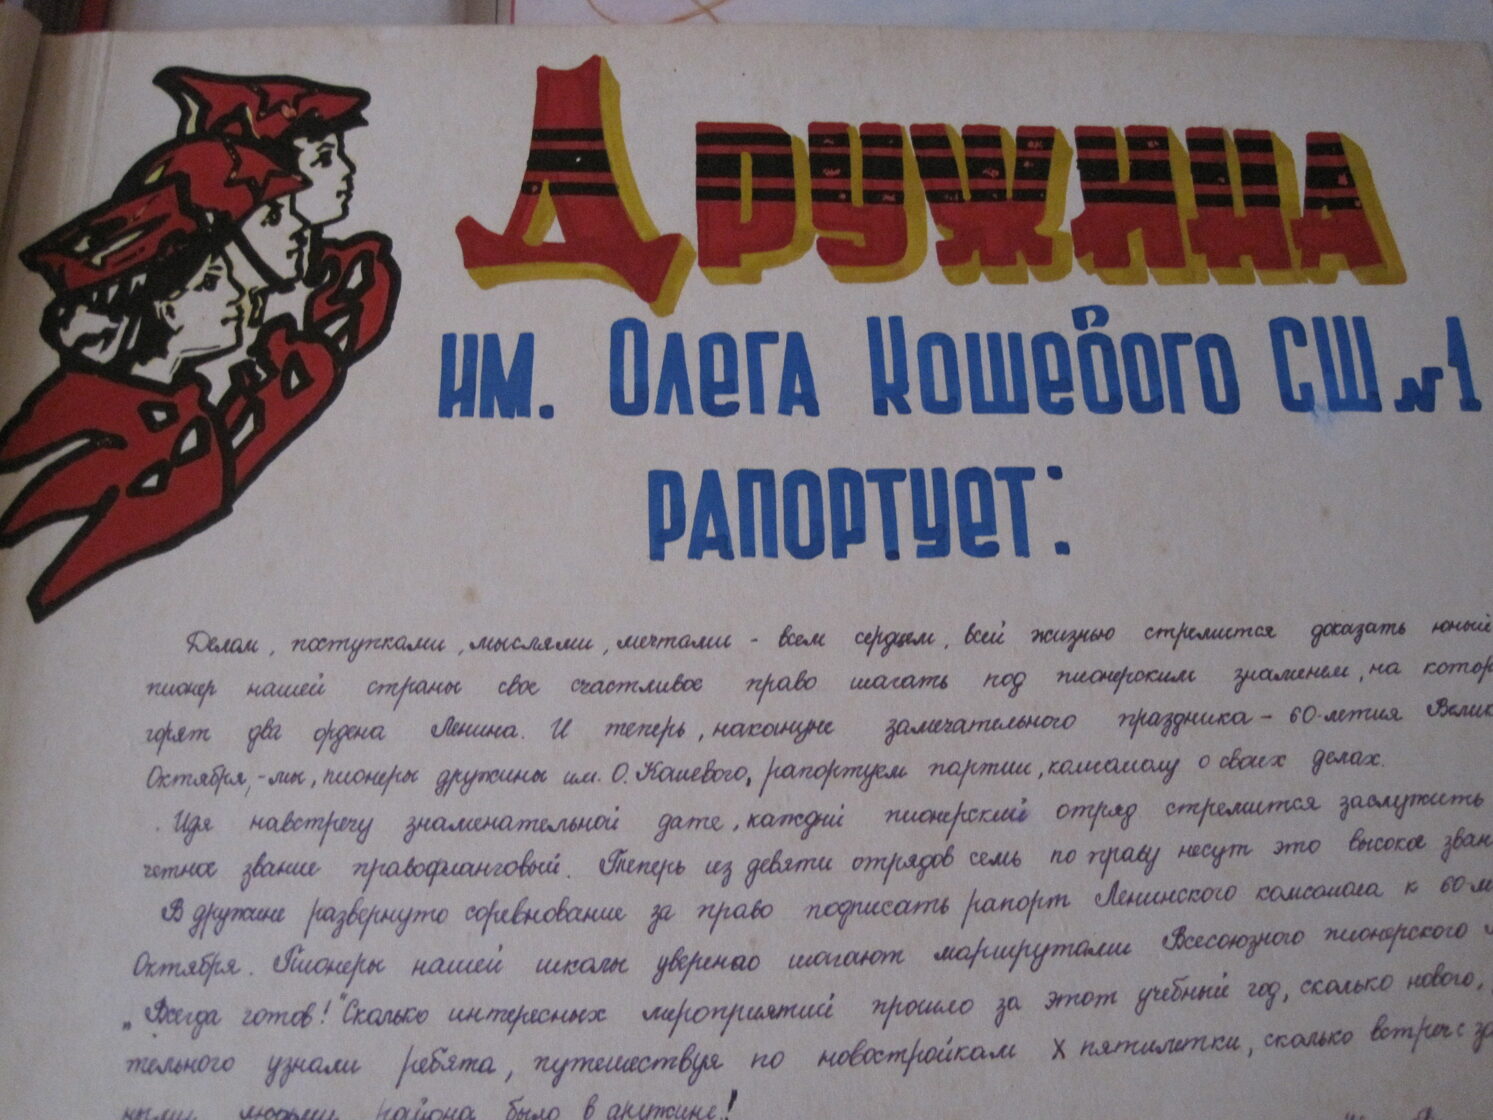 Дружина
им. Олега Кошевого СШ №1
рапортует:
Делом, поступками, мыслями, мечтами - всем сердцем, всей жизнью стремится доказать юный
пионер нашей страны свое счастливое право шагать под пионерским знаменем, на котор
горят два ордена Ленина. И теперь, наканцне замечательного праздника - 60-летия Велик
Октября, - мы, пионеры дружины им. О. Кошевого, рапортуем партии, комсомолу о своих делах.
Идя навстречу знаменательной дате, каждый пионерский отряд стремится заслужить
четное звание правофланговый. Теперь из девяти отрядов семь по праву несут это высокое зван
В дружине развернуто соревнование за право подписать рапорт Ленинского комсомола к 60-ле
Октября. Пионеры нашей школы уверенно шагают маршрутами Всесоюзного пионерского
„Всегда готов!" Сколько интересных мероприятий прошло за этот учебный год, сколько нового,
тельного узнали ребята, путешествуя по новостройкам X пятилетки, сколько встреч с
ными людьми района было в дружине!